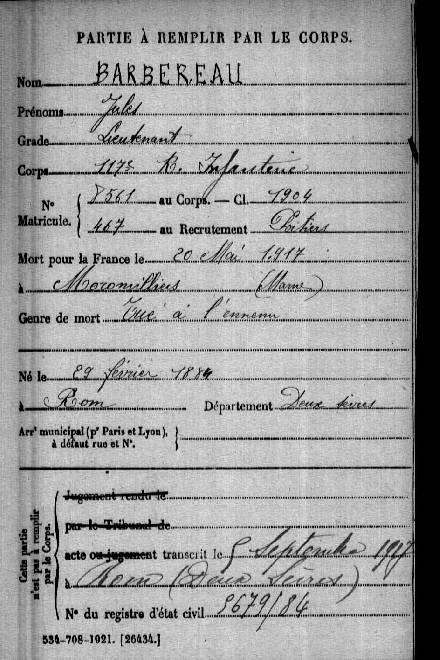 PARTIE À REMPLIR PAR LE CORPS.
Nom BARBEREAU
Prénoms Jules
Grade Lieutenant
Corps 117e R. Infanterie
N° Matricule. 8561 au Corps. — Cl. 1904
467 au Recrutement Poitiers
Mort pour la France le 20 Mai 1917
à Moronvilliers (Marne)
Genre de mort Tué à l'ennemi
Né le 29 février 1884
à Rom Département Deux Sèvres
Arrt municipal (pr Paris et Lyon),
à défaut rue et N°.
Cette partie n'est pas à remplir par le Corps.
Jugement rendu le
par le Tribunal de
acte ou jugement transcrit le 5 Septembre 1917
à Rom (Deux Sèvres)
N° du registre d'état civil 9679/84
534-708-1921. [26434.]